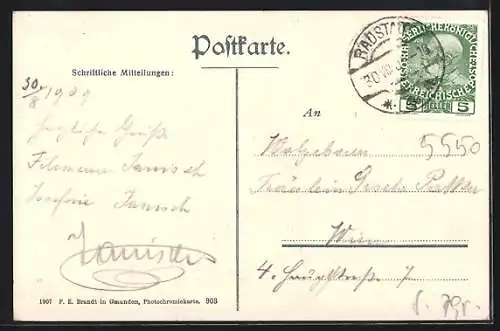 Postkarte.
Schriftliche Mitteilungen:
30/8 1909
Herzliche Grüße
Filomena Janisch
Josefine Janisch
Janisch
1907 F. E. Brandt in Gmunden, Photochromiekarte. 903
RADSTADT
30 VIII
KAISERLICHE KÖNIGLICHE ÖSTERREICHISCHE POST
5 HELLER 5
An
5550
Fräulein
Wien
4. Hauptstraße 7